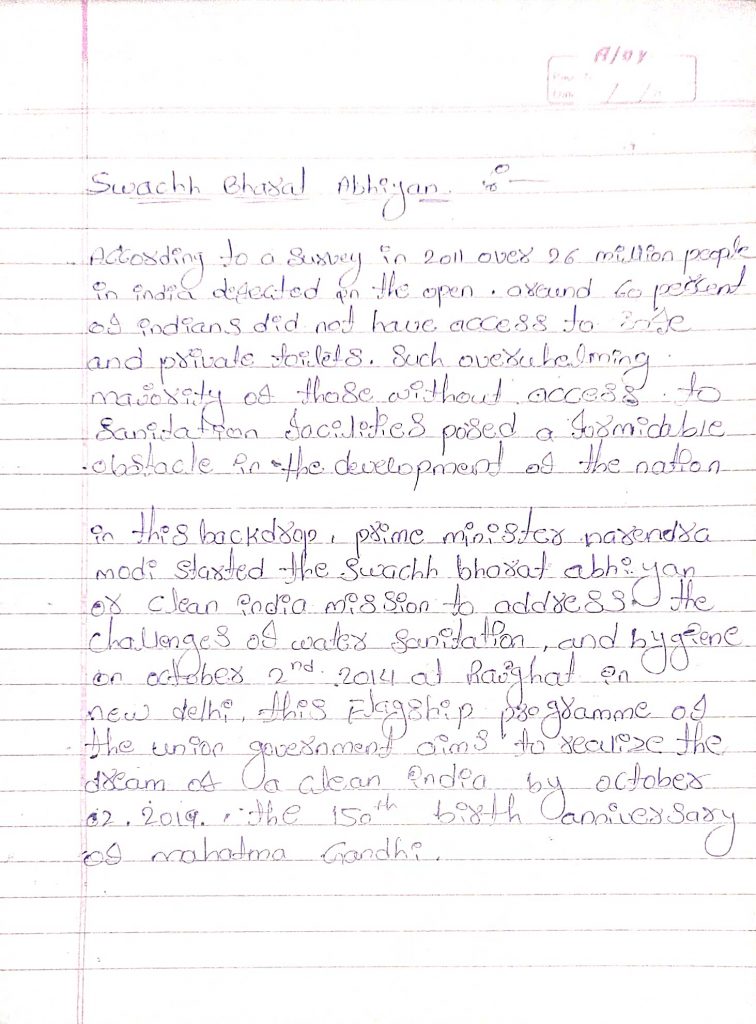 Swachh Bharat Abhiyan :-
According to a survey in 2011 over 26 million people
in india defecated in the open. around 60 percent
of indians did not have access to
and private toilets. Such overwhelming
majority of those without access to
Sanitation facilities posed a formidable
obstacle in the development of the nation
in this backdrop, prime minister narendra
modi started the Swachh bharat abhiyan
or clean india mission to address the
challenges of water sanitation, and hygiene
on october 2nd. 2014 at Rajghat in
new delhi, this Flagship programme of
the union government aims to realize the
dream of a clean india by october
02. 2019. the 150th birth anniversary
of mahatma Gandhi.